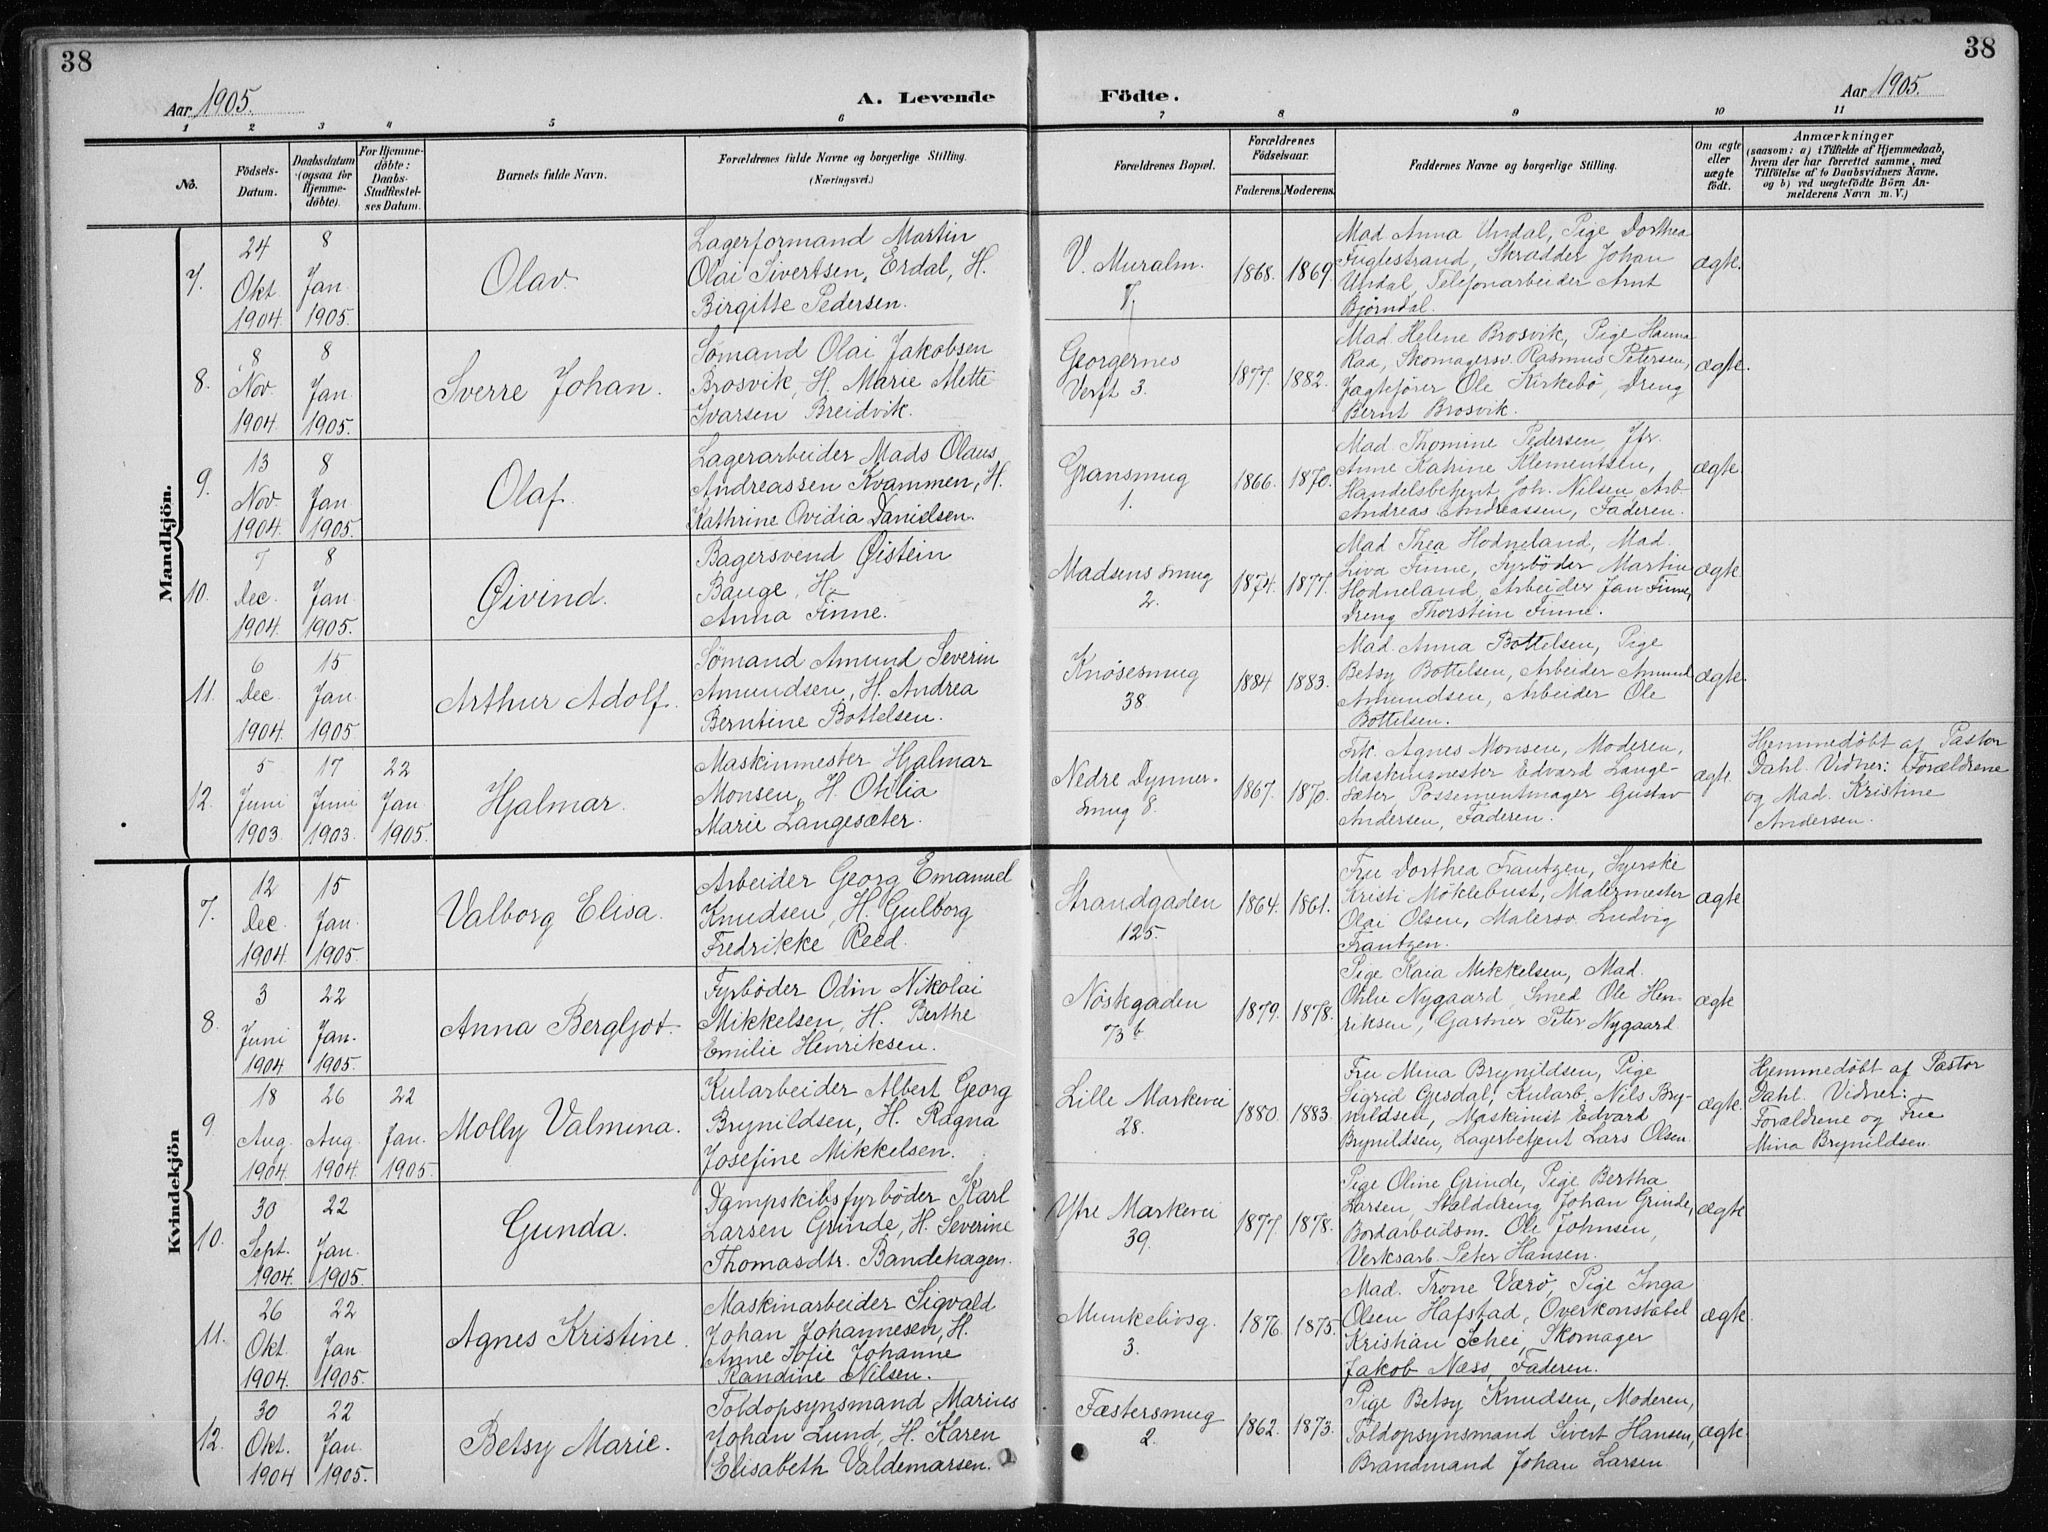 38
38
Aar 1905.
A. Levende
Födte.
Aar 1905.
1 2 3 4 5 6 7 8 9 10 11
No.
Födsels-Datum.
Daabsdatum (ogsaa for Hjemmedöbte).
For Hjemmedöbte: Daabs-Stadfæstelses Datum.
Barnets fulde Navn.
Forældrenes fulde Navne og borgerlige Stilling.
(Næringsvei.)
Forældrenes Bopæl.
Forældrenes Födselsaar.
Faderens. Moderens.
Faddernes Navne og borgerlige Stilling.
Om ægte eller uægte födt.
Anmærkninger
(saasom: a) i Tilfælde af Hjemmedaab, hvem der har forrettet samme, med Tilföielse af to Daabsvidners Navne, og b) ved uægtefödte Börn Anmelderens Navn m. V.)
Mandkjön.
7.
24 Okt 1904
8 Jan. 1905.
Olav.
Lagerformand Martin
Olai Sivertsen, Erdal, H.
Birgitte Pedersen.
V. Muralm.
7,
1868. 1869.
Mad. Anna Undal, Pige Dorthea
Fuglestrand, Skrædder Johan
Undal, Telefonarbeider Arnt
Bjørndal.
ægte.
8.
8 Nov. 1904.
8 Jan. 1905.
Sverre Johan.
Sømand Olai Jakobsen
Brosvik, H. Marie Mette
Ivarsen Breidvik.
Georgernes
Verft 3.
1877. 1882.
Mad Helene Brosvik, Pige Hanna
Raa, Skomagersv. Rasmus Petersen,
Jægtefører Ole Kirkebö, Dreng
Bernt Brosvik.
ægte.
9.
13 Nov. 1904.
8 Jan. 1905.
Olaf.
Lagerarbeider Mads Olaus
Andreassen Kvammen, H.
Kathrine Ovidia Danielsen.
Gransmug
1.
1866. 1870.
Mad. Thomine Pedersen, Jfr.
Anne Katrine Klementsen,
Handelsbetjent Joh. Nilsen, Arb-
Andreas Andreassen, Faderen.
ægte
10.
7 Dec. 1904.
8 Jan. 1905.
Øivind.
Bagersvend Øistein
Bauge, H.
Anna Finne.
Madsens smug
2.
1874. 1877.
Mad Thea Hodneland, Mad.
Liva Finne, Fyrbøder Martin
Hodneland, Arbeider Jan Finne,
Dreng Thorstein Finne.
ægte.
11.
6 Dec. 1904.
15 Jan. 1905.
Arthur Adolf.
Sømand Amund Severin
Amundsen, H. Andrea
Berntine Bottelsen.
Knøsesmug
38
1884 1883.
Mad. Anna Bottelsen, Pige
Betsy Bottelsen, Arbeider Amund
Amundsen, Arbeider Ole
Bottelsen.
ægte.
12.
5 Juni 1903.
17 Juni 1903.
22 Jan 1905.
Hjalmar.
Maskinmester Hjalmar
Monsen, H. Othilia
Marie Langesæter.
Nedre Dynner-
smug 8.
1867. 1870.
Frk. Agnes Monsen, Moderen,
Maskinmester Edvard Lange-
sæter, Possementmager Gustav
Andersen, Faderen.
ægte.
Hjemmedøbt af Pastor
Dahl. Vidner: Forældrene
og Mad. Kristine
Andersen.
Kvindekjön
7.
12 Dec. 1904.
15 Jan. 1905.
Valborg Elisa.
Arbeider Georg Emanuel
Knudsen, H. Gulborg
Fredrikke Reed.
Strandgaden
125.
1864. 1861.
Fru Dorthea Frantzen, Syerske
Kristi Möklebust, Malermester
Olai Olsen, Malersv. Ludvig
Frantzen.
ægte
8.
3 Juni 1904
22 Jan. 1905.
Anna Bergljot.
Fyrbøder Odin Nikolai
Mikkelsen, H. Berthe
Emilie Henriksen.
Nøstegaden
73 b
1879. 1878.
Pige Kaia Mikkelsen, Mad.
Othlie Nygaard, Smed Ole Hen-
riksen, Gartner Peter Nygaard
ægte
9.
18 Aug. 1904.
26 Aug. 1904.
22 Jan. 1905.
Molly Valmina.
Kularbeider Albert Georg
Brynildsen, H. Ragna
Josefine Mikkelsen.
Lille Markevei
28.
1880. 1883.
Fru Mina Brynildsen, Pige
Sigrid Gjesdal, Kularb. Nils Bry-
nildsen, Maskinist Edvard
Brynildsen, Lagerbetjent Lars Olsen.
ægte.
Hjemmedøbt af Pastor
Dahl. Vidner:
Forældrene og Frue
Mina Brynildsen.
10.
30 Sept. 1904.
22 Jan. 1905.
Gunda.
Dampskibsfyrbøder Karl
Larsen Grinde, H. Severine
Thomasdtr. Bandehagen.
Ytre Markevei
39.
1877. 1878.
Pige Oline Grinde, Pige Bertha
Larsen, Stalddreng Johan Grinde,
Bordarbeidsm. Ole Johnsen,
Verksarb. Peter Hansen.
ægte
11.
26 Okt. 1904.
22 Jan 1905.
Agnes Kristine.
Maskinarbeider Sigvald
Johan Johannesen, H.
Anne Sofie Johanne
Randine Nilsen.
Munkelivsg.
3.
1876. 1875.
Mad. Trone Værø, Pige Inga
Olsen Hafstad, Overkonstabel
Kristian Schei, Skomager
Jakob Næss, Faderen.
ægte.
12.
30 Okt. 1904
22 Jan. 1905.
Betsy Marie.
Toldopsynsmand Marius
Johan Lund, H. Karen
Elisabeth Valdemarsen.
Fæstersmug
2.
1862. 1873.
Pige Betsy Knudsen, Moderen,
Toldopsynsmand Sivert Hansen,
Brandmand Johan Larsen
ægte.